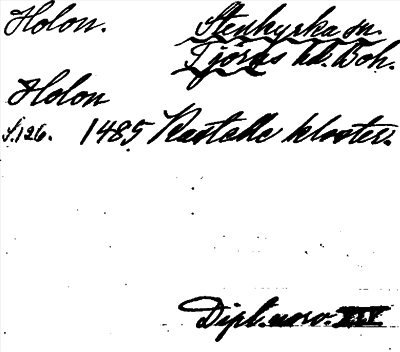 Holon. Stenkyrka sn.
Tjörns hd. Boh.
Holon
S.126. 1485 Kastelle kloster.
Dipl. norv. III